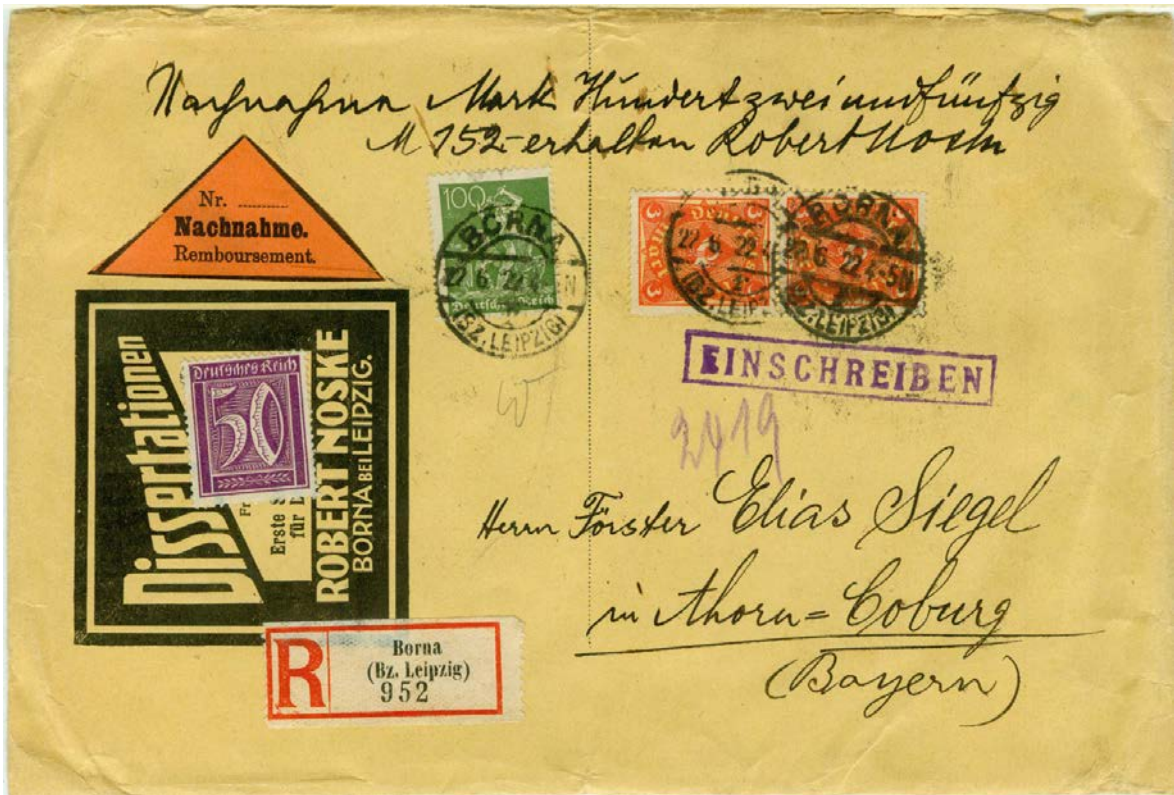 Nachnahme Mark Hundertzweiundfünfzig
M 152- erhalten Robert Noske
Nr.
Nachnahme.
Remboursement.
100
Deutsches Reich
BORNA
22.6.22
(BZ. LEIPZIG)
3
3
BORNA
22.6.22 4-5N
(BZ. LEIPZIG)
EINSCHREIBEN
2419
Deutsches Reich
50
Dissertationen
Erste
für
ROBERT NOSKE
BORNA BEI LEIPZIG.
Herrn Förster Elias Siegel
in Ahorn=Coburg
(Bayern)
R
Borna
(Bz. Leipzig)
952